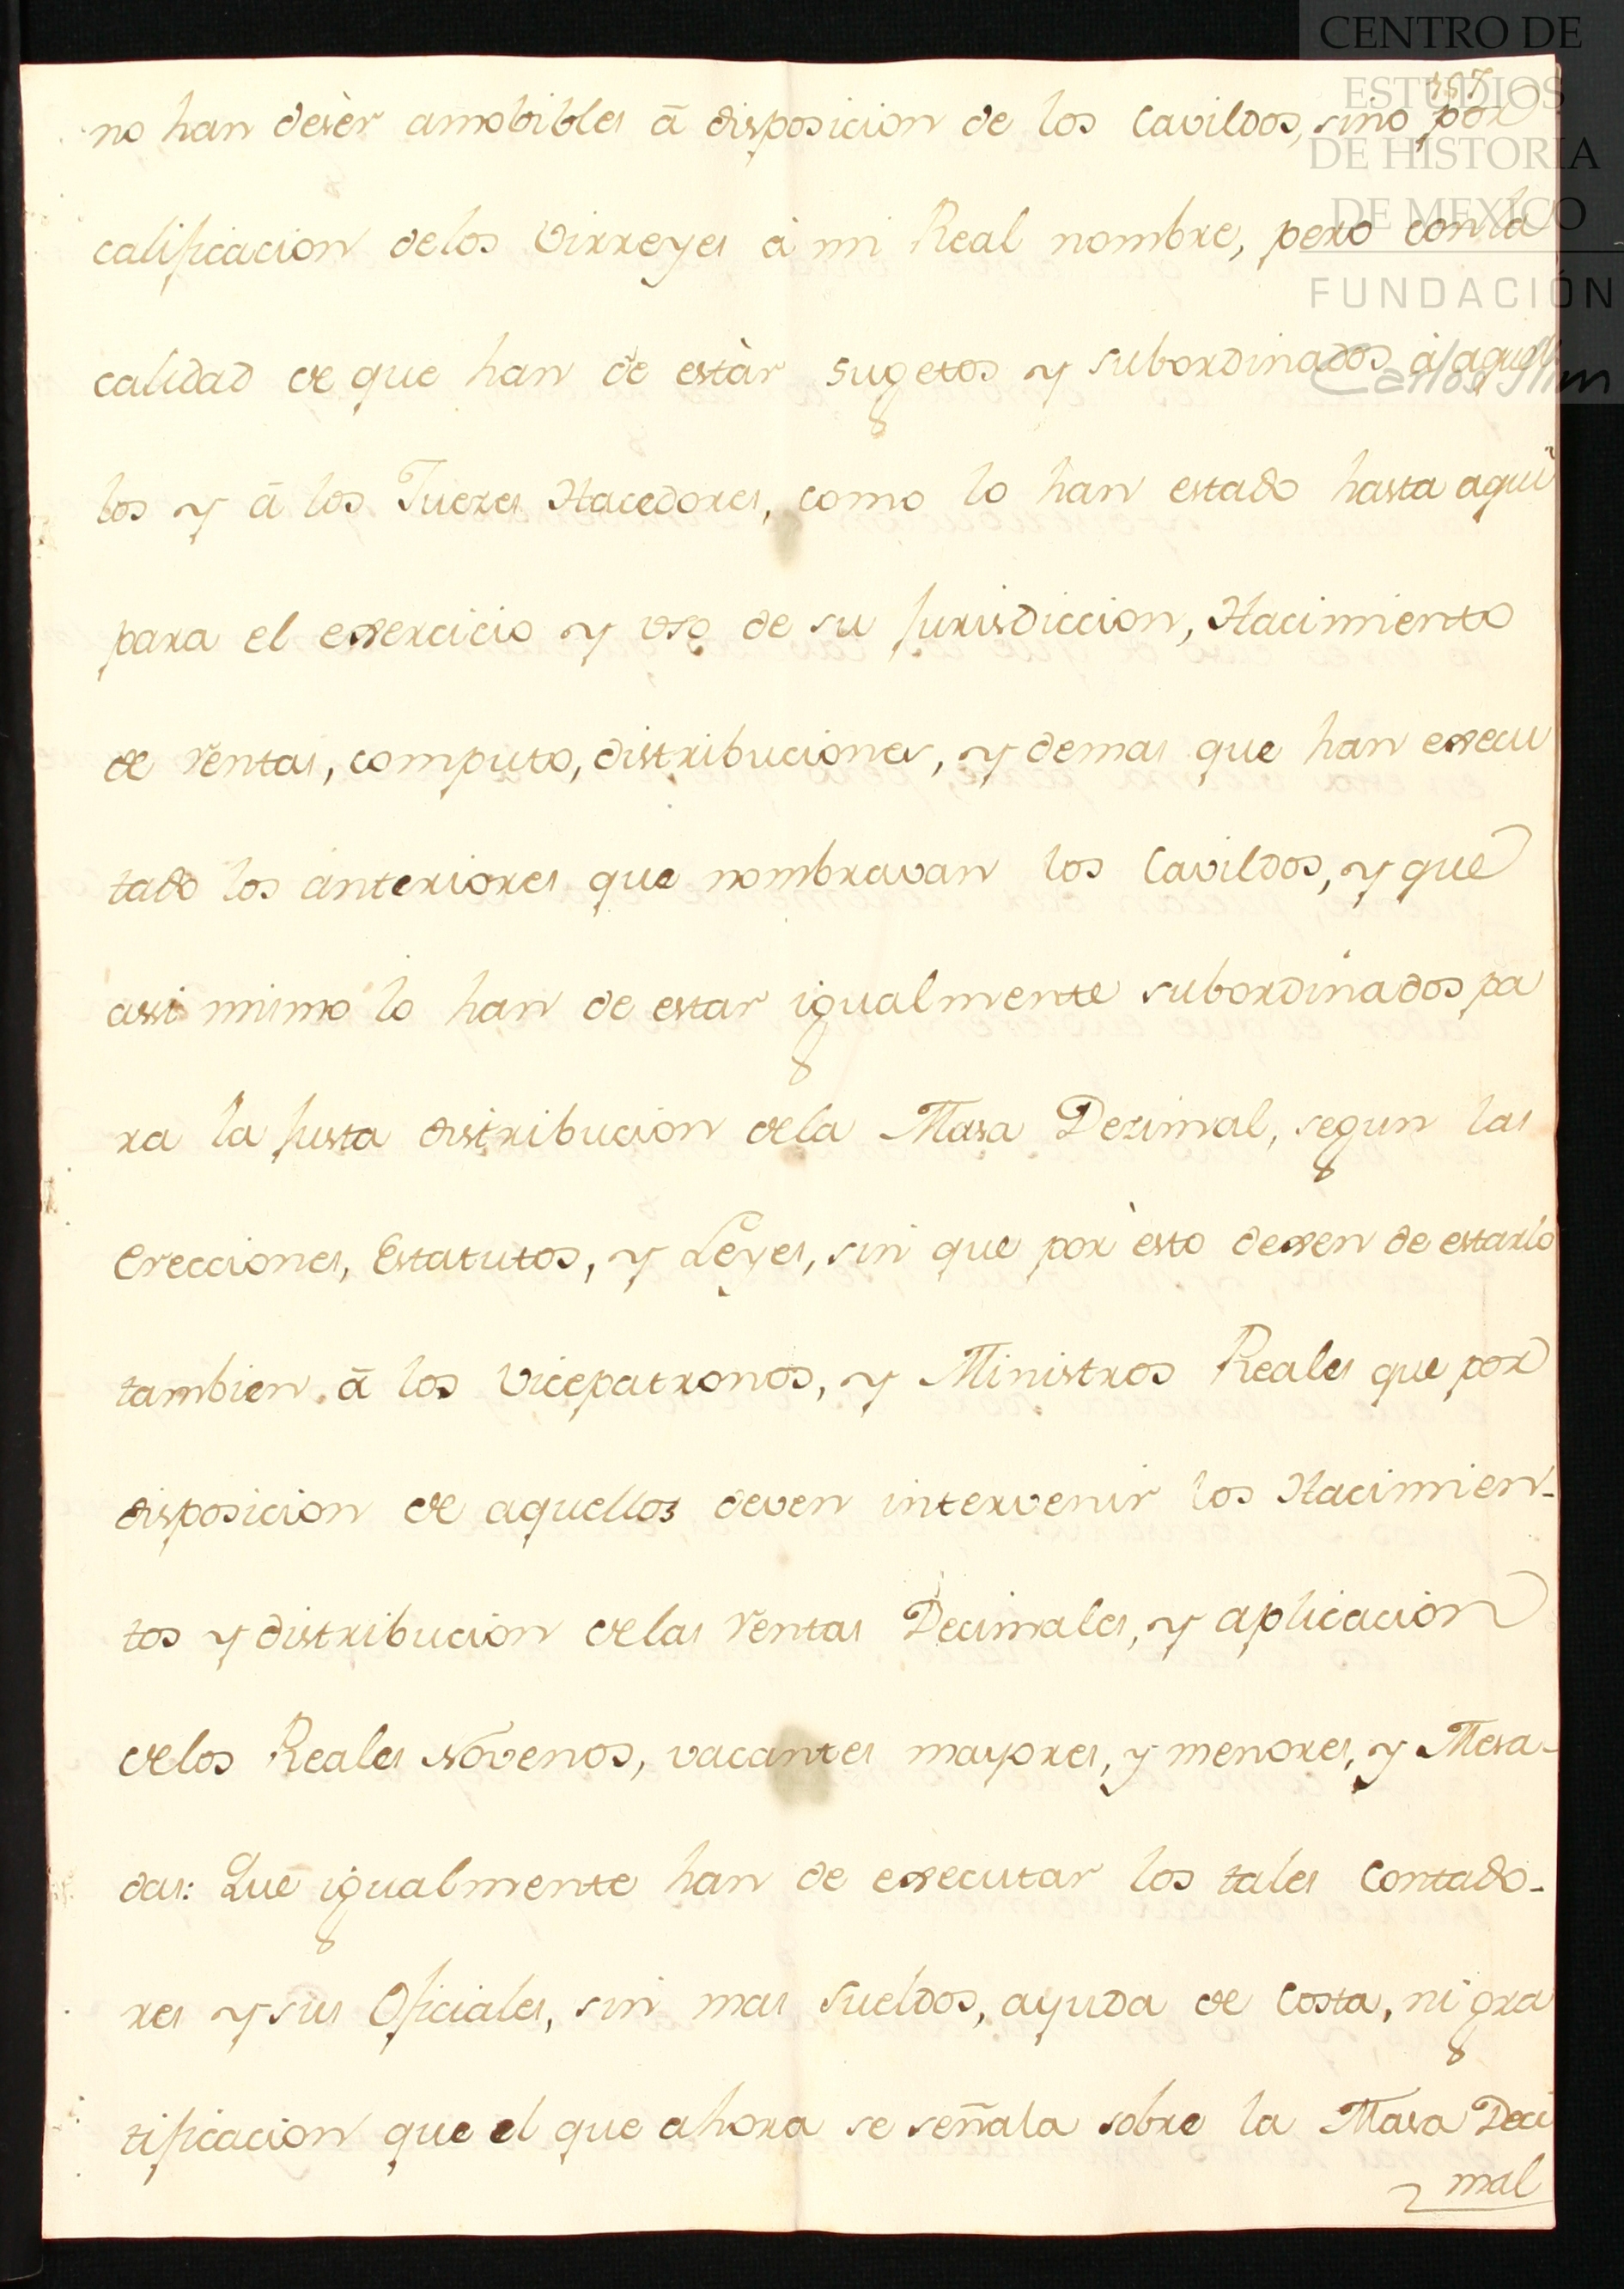 CENTRO DE
ESTUDIOS
DE HISTORIA
DE MEXICO
FUNDACIÓN
Carlos Slim
no han desèr amobibles â disposicion de los Cavildos, sino por
calificacion delos Virreyes â mi Real nombre, pero con la
calidad de que han de estàr sugetos y subordinados â aquel
los y â los Juezes Hacedores, como lo han estado hasta aqui
para el exercicio y uso de su Jurisdiccion, Hacimiento
de rentas, computo, distribuciones, y demas que han execu
tado los anteriores que nombravan los Cavildos, y que
assi mimo lo han de estar igualmente subordinados pa
ra la justa distribucion dela Masa Dezimal, segun las
Erecciones, Estatutos, y Leyes, sin que por èsto dexen de estarlo
tambien â los Vicepatronos, y Ministros Reales que por
disposicion de aquellos deven intervenir los Hacimien-
tos y distribucion delas rentas Decimales, y aplicacion
delos Reales Novenos, vacantes mayores, y menores, y Mesa-
das: Que igualmente han de executar los tales Contado-
res y sus Oficiales, sin mas sueldos, ayuda de Costa, ni gra
tificacion que el que ahora se señala sobre la Masa Deci
mal